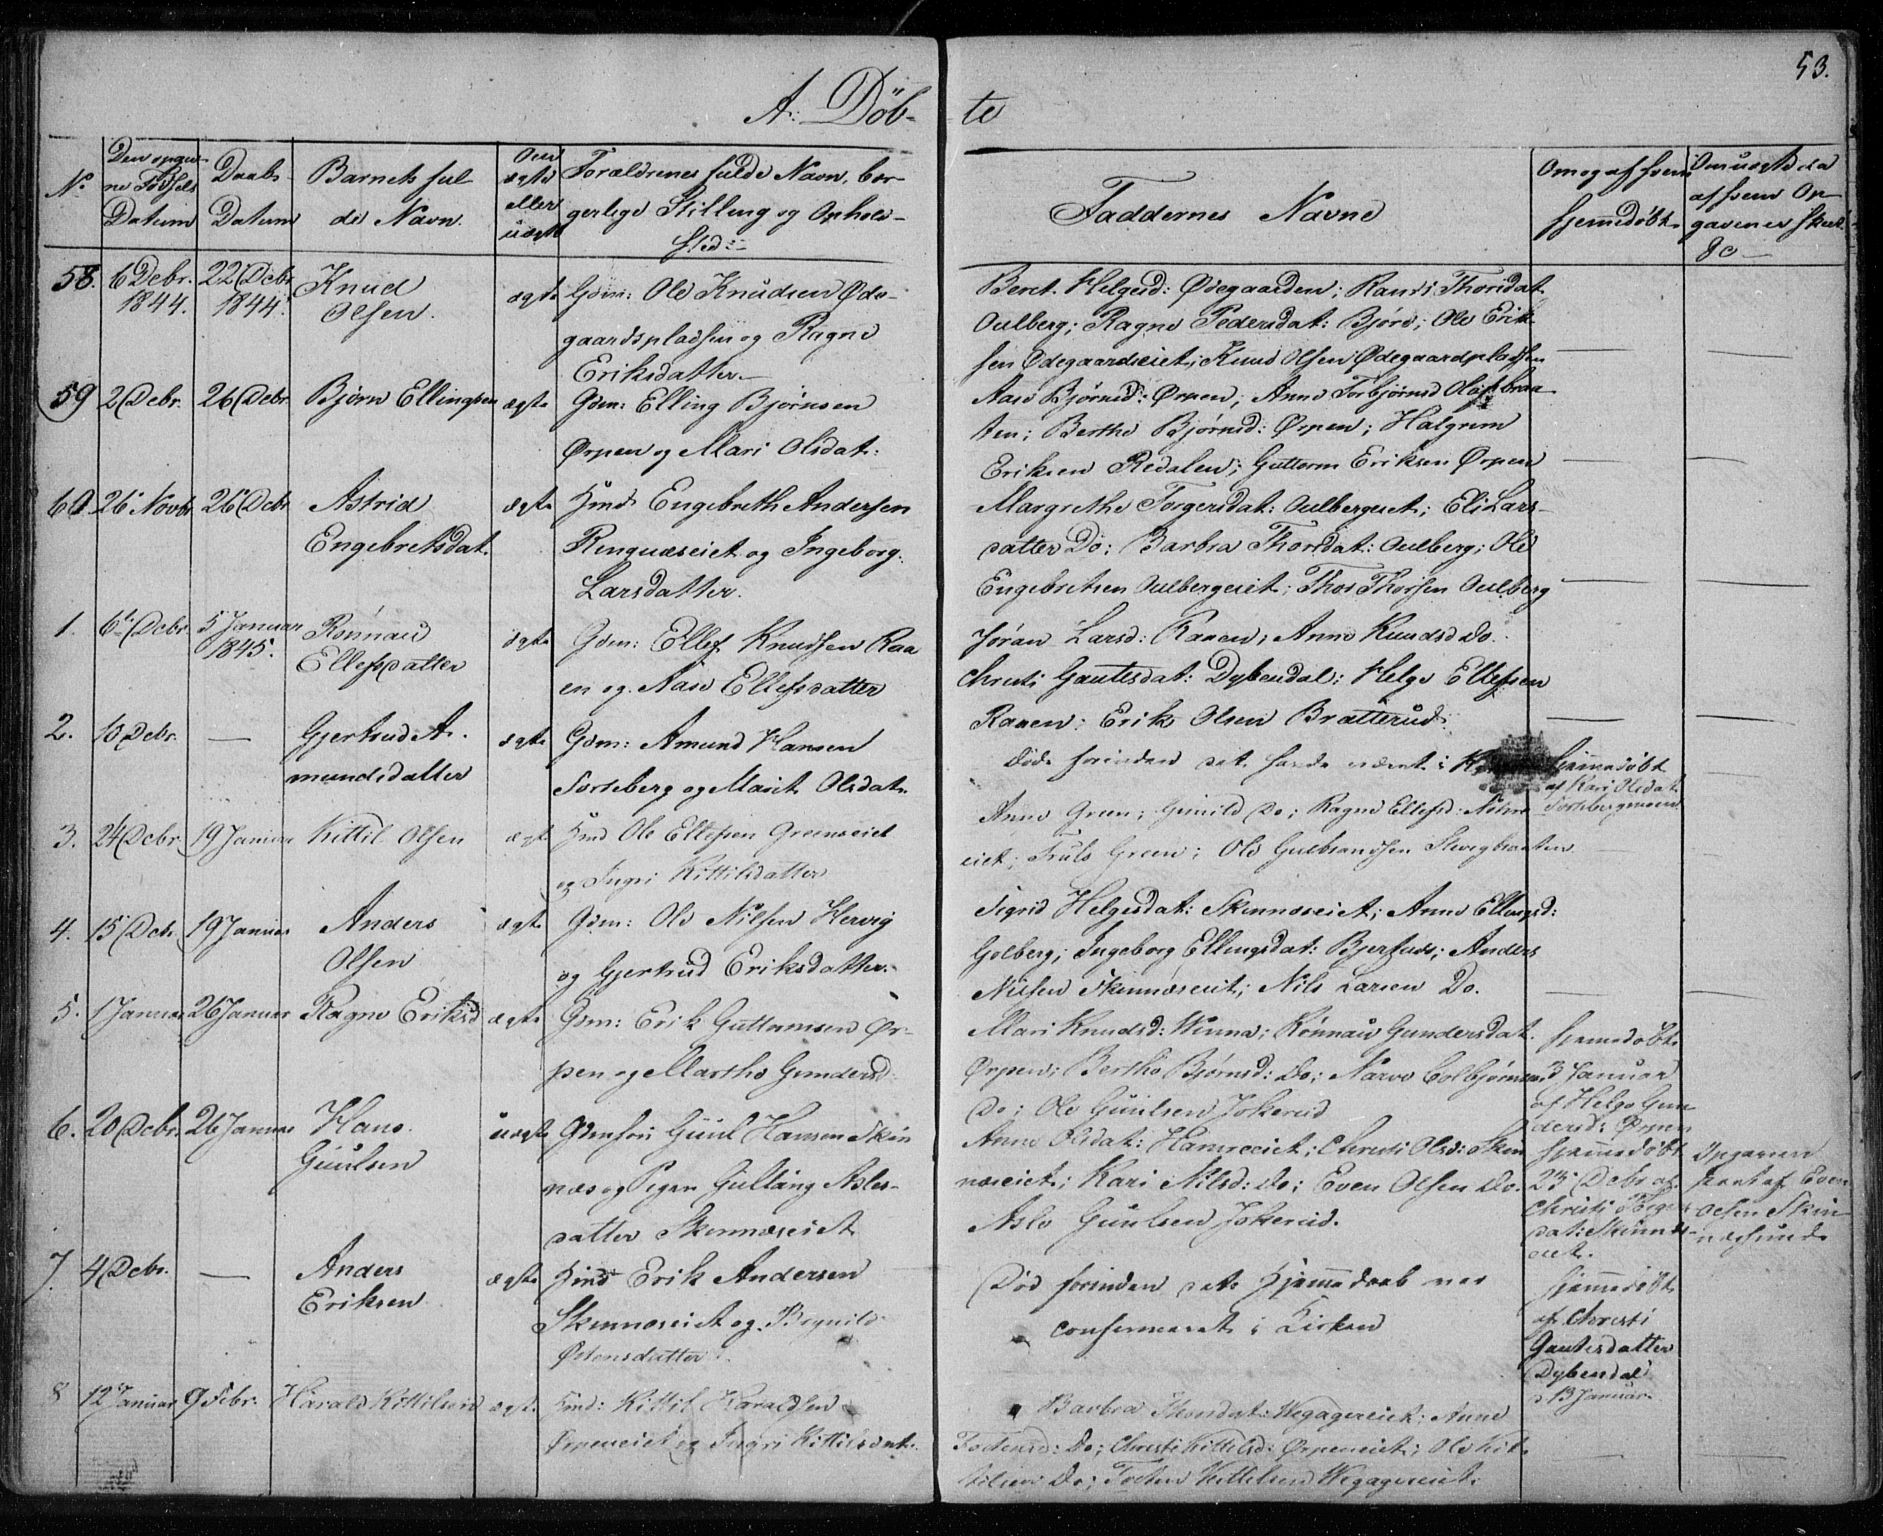 53.
A: Döb- te
No
Den opgiv-
ne Födsels
Datum
Daabs
Datum
Barnets ful
de Navn.
Om
ægte
eller
uægte
Forældrenes fulde Navn, bor-
gerlige Stilling og Opholds-
sted
Faddernes Navne
Om og af hvem
hjemmedöbt
Om uægte da
af hvem Op-
gaven er skeet
58. 6 Decbr. 1844. 22 Decbr 1844. Knud Olsen. ægte
Gdm: Ole Knudsen Øde-
gaardspladsen og Ragne
Eriksdatter
Beret. Helgesd: Ødegaarden; Randi Thorsdat
Aulberg; Ragne Pedersdat: Bjøre; Ole Erik-
sen Ødegaardseiet; Knud Olsen Ødegaardpladsen
59 2 Decbr. 26 Decbr Bjørn Ellingsen ægte
Gdm: Elling Bjørnsen
Ørpen og Mari Olsdat:
Aase Bjørnsd: Ørpen; Anne Torbjørnsd
ten; Berthe Bjørnsd: Ørpen; Halgrim
Eriksen Redalen; Guttorm Eriksen Ørpen
60. 26 Novbr 26 Decbr Astrid Engebretsdat. ægte
Hmd Engebreth Andersen
Ringnæseiet og Ingeborg
Larsdatter.
Margrethe Torgersdat: Aulbergeiet; Eli Lars-
datter Do; Barbra Thorsdat: Aulberg; Ole
Engebretsen Aulbergeiet; Thor Thorsen Aulberg
1. 6 Decbr 5 Januar 1845. Rønnau Ellefsdatter ægte
Gdm: Ellef Knudsen Raa
en og Aase Ellefsdatter
Jøran Larsd: Raaen; Anne Knudsd Do.
Christi Gautesdat: Dybendal; Helge Ellefsen
Raaen; Erik Olsen Bratterud
2. 10 Decbr. — Gjertrud A-
mundsdatter ægte
Gdm: Amund Hansen
Sorteberg og Marit Olsdat.
døde forinden det havde været i
hjemmedöbt
af Kari Olsdat
3. 24 Decbr. 19 Januar Kittil Olsen ægte
Hmd Ole Ellefsen Greeneiet
og Ingri Kittilsdatter
Anne Green; Gunild Do; Ragne Ellefsd:
eiet; Truls Green; Ole Gulbrandsen
4. 15 Decbr. 19 Januar Anders Olsen ægte
Gdm: Ole Nilsen Hervig
og Gjertrud Eriksdatter.
Sigrid Helgesdat: Skinnæseiet; Anne Ellingsd:
Golberg; Ingeborg Ellingsdat: Anders
Nilsen Skinnæseiet; Nils Larsen Do.
5. 1 Januar 26 Januar Ragne Eriksd ægte
Gdm: Erik Guttormsen Ør-
pen og Marthe Gundersd
Mari Knudsd: Winna; Rønnau Gundersdat.
Ørpen; Berthe Bjørnsd: Do; Narve Colbjørnsen
Do; Ole Guulsen Jokerud
hjemmedöbt
3 Januar
af Helge Gun
dersd: Ørpen
6. 20 Decbr. 26 Januar Hans
Guulsen uægte
Guul Hansen Skin
næs og Pigen Aslesdatter Skinnæseiet
Anne Olsdat: Christi Olsd: Skin
næseiet; Kari Nilsd: Do; Even Olsen Do.
Asle Guulsen Jokerud.
hjemmedöbt
25 Decbr af
Christi
dat: Skinnæs
eiet.
Opgaven
skeet af Even
Olsen Skin-
7. 4 Decbr. — Anders
Eriksen ægte
Hmd Erik Andersen
Skinnæseiet og
Østensdatter.
Död forinden dets Hjemmedaab var
confirmeret i Kirken
hjemmedöbt
af Christi
Gautesdatter
Dybendal
13 Januar
8 12 Januar 9 Febr. Harald Kittilsen ægte
Hmd: Kittil Haraldsen
Ørpeneiet og Ingri Kittilsdat.
Barbra Thorsdat: Anne
Do; Christi Kittilsd: Ørpeneiet; Ole Kit-
tilsen Do; Kittilsen